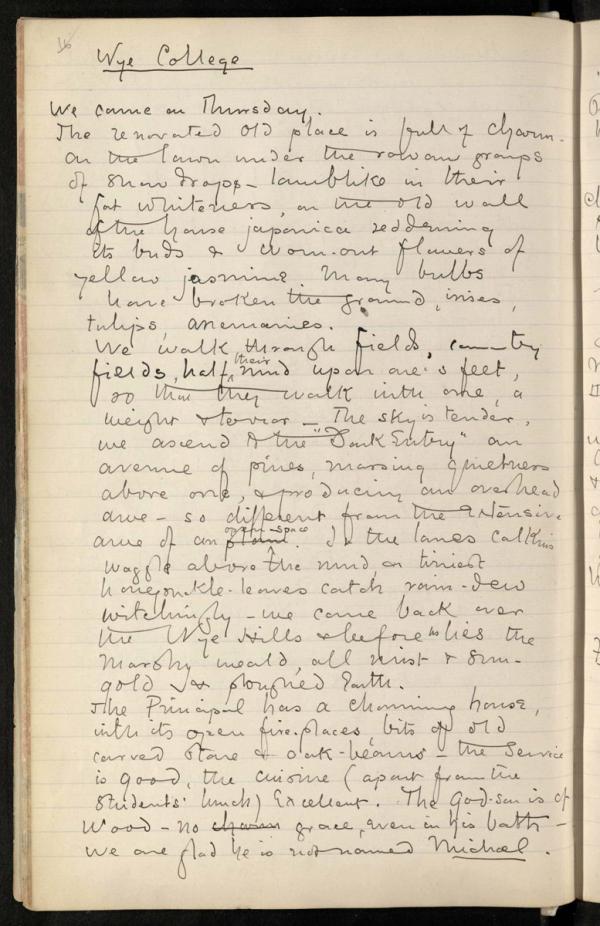 16
Wye College
We came on Thursday.
The renovated old place is full of charm.
On the lawn under the rowan groups
of snowdrops - lamblike in their
fat whiteness, on the old wall
of the house japonica reddening
its buds & worn-out flowers of
yellow jasmine. Many bulbs
have broken the ground, irises,
tulips, anemones.
We walk through fields, country
fields, half their mud upon one's feet,
so that they walk with one, a
weight & terror - The sky is tender,
we ascend to the "Dark Entry" an
avenue of pines, massing quietness
above one, & producing an overhead
awe - so different from the extensive
awe of an plain open-space. In the lanes catkins
waggle above the mud, on tiniest
honeysuckle-leaves catch rain-dew
witchingly - we come back over
the Wye Hills & before us lies the
marshy weald, all mist & sun-
gold & ploughed Earth.
The Principal has a charming house,
with its open fire-places, bits of old
carved stone & oak-beams - the Service
is good, the cuisine (apart from the
Students' lunch) Excellent. The God-son is of
Wood - no charm grace, even in his bath -
we are glad he is not named Michael.